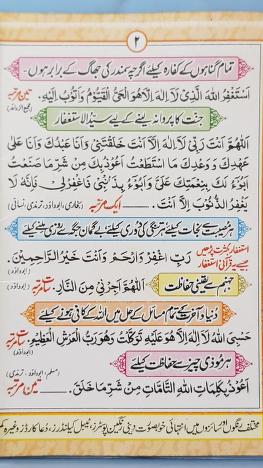 ۲
تمام گناہوں کے کفارہ کیلئے اگرچہ سمندر کی جھاگ کے برابر ہوں۔
اَسْتَغْفِرُ اللّٰهَ الَّذِیْ لَآ اِلٰهَ اِلَّا هُوَ الْحَیُّ الْقَیُّوْمُ وَاَتُوْبُ اِلَیْهِ۔ تین مرتبہ
جنت کا پروانہ پانے کے لیے سیّد الاستغفار
اَللّٰهُمَّ اَنْتَ رَبِّیْ لَآ اِلٰهَ اِلَّا اَنْتَ خَلَقْتَنِیْ وَاَنَا عَبْدُكَ وَاَنَا عَلٰی
عَهْدِكَ وَوَعْدِكَ مَا اسْتَطَعْتُ اَعُوْذُبِكَ مِنْ شَرِّ مَا صَنَعْتُ
اَبُوْءُ لَكَ بِنِعْمَتِكَ عَلَیَّ وَاَبُوْءُ بِذَنْۢبِیْ فَاغْفِرْلِیْ فَاِنَّهٗ لَا
یَغْفِرُ الذُّنُوْبَ اِلَّا اَنْتَ۔ ایک مرتبہ (بخاری، ابوداؤد، ترمذی، نسائی)
ہر مصیبت سے نجات کیلئے ہر تنگی کی دوری کیلئے بے گمان جگہ سے روزی ملنے کیلئے
رَبِّ اغْفِرْ وَارْحَمْ وَاَنْتَ خَیْرُ الرَّاحِمِیْنَ۔ استغفار بکثرت پڑھیں
جیسے یہ قرآنی استغفار
(ابوداؤد)
جہنم سے یقینی حفاظت اَللّٰهُمَّ اَجِرْنِیْ مِنَ النَّارِ۔ سات مرتبہ
(ابوداؤد)
دنیا و آخرت کے تمام مسائل کے حل میں اللہ کے کافی ہونے کیلئے
حَسْبِیَ اللّٰهُ لَآ اِلٰهَ اِلَّا هُوَ عَلَیْهِ تَوَكَّلْتُ وَهُوَ رَبُّ الْعَرْشِ الْعَظِیْمِ۔ سات مرتبہ
(ابوداؤد)
ہر موذی چیز سے حفاظت کیلئے
(مسلم، ابوداؤد، ترمذی)
اَعُوْذُ بِكَلِمَاتِ اللّٰهِ التَّامَّاتِ مِنْ شَرِّ مَا خَلَقَ۔ تین مرتبہ
مختلف رنگوں اور سائزوں میں انتہائی خوبصورت دینی رنگین پوسٹرز، ٹیبل کیلنڈرز، دعا کارڈز وغیرہ